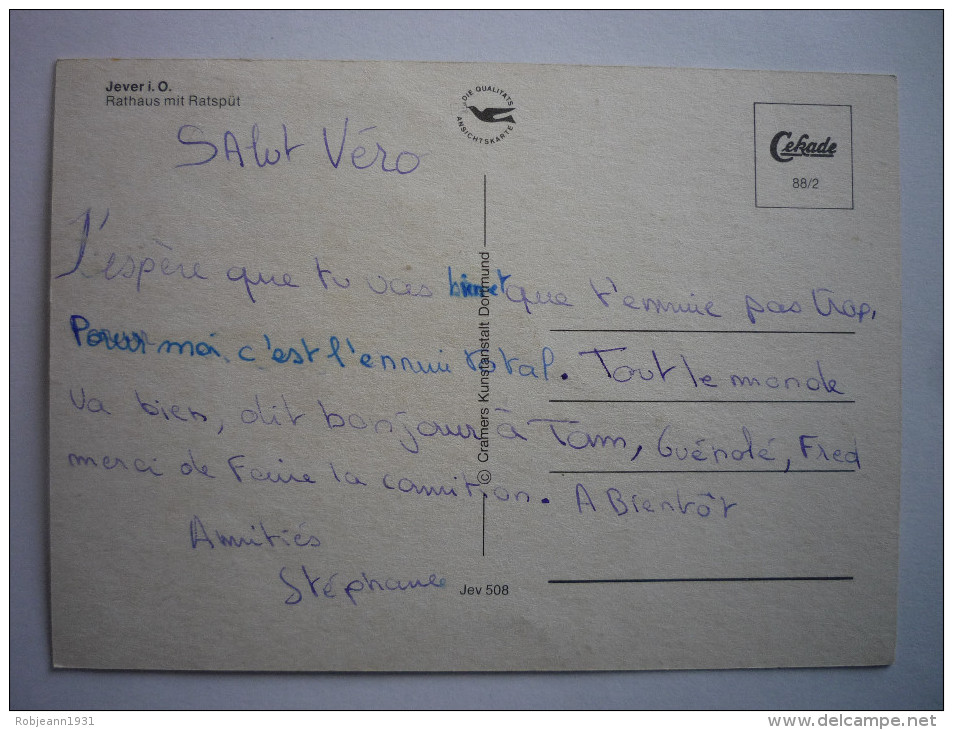 Jever i. O.
Rathaus mit Ratspüt
DIE QUALITÄTS
ANSICHTSKARTE
Cekade
88/2
SAlut Véro
J'espère que tu vas bien et que t'ennuie pas trop.
Pour moi c'est l'ennui total. Tout le monde
va bien, dit bonjour à Tom, Guénolé, Fred
merci de faire la comition. A Bientôt
Amitiés
Stéphane
© Cramers Kunstanstalt Dortmund
Jev 508
Robjeann1931
www.delcampe.net